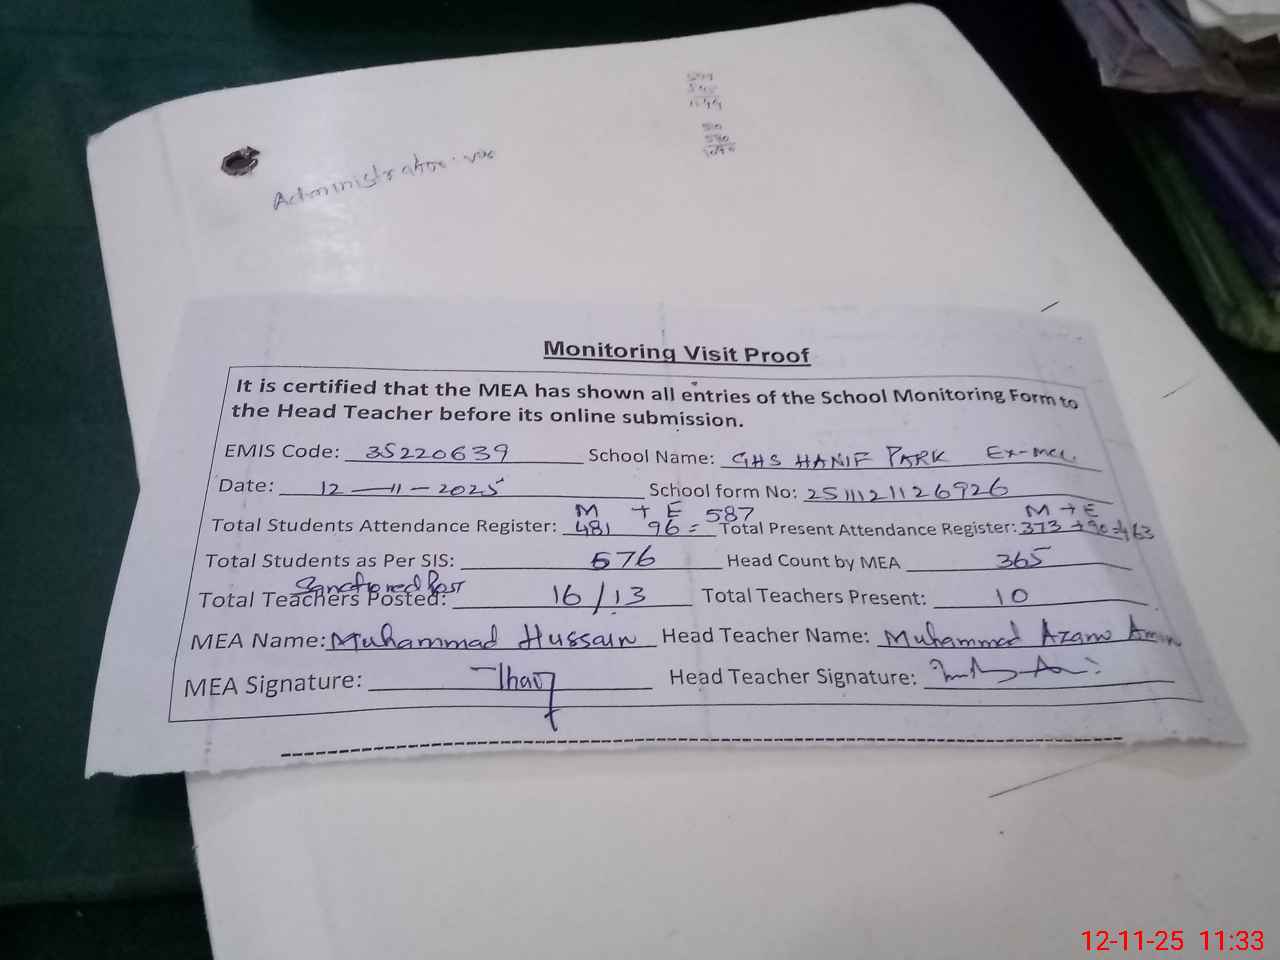 Administrator
Monitoring Visit Proof
It is certified that the MEA has shown all entries of the School Monitoring Form to
the Head Teacher before its online submission.
EMIS Code: 35220639 School Name: GHS HANIF PARK Ex-mcl.
Date: 12-11-2025 School form No: 2511121126926
M + E 587 M + E
Total Students Attendance Register: 481 96 = Total Present Attendance Register: 373 + 90 = 463
Total Students as Per SIS: 576 Head Count by MEA 365
Sanctioned Post
Total Teachers Posted: 16/13 Total Teachers Present: 10
MEA Name: Muhammad Hussain Head Teacher Name: Muhammad Azam Amin
MEA Signature: Head Teacher Signature:
12-11-25 11:33